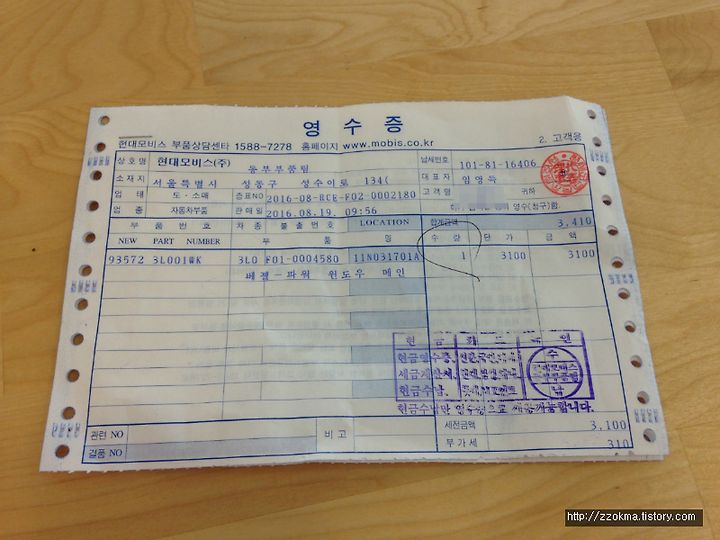 영 수 증
현대모비스 부품상담센타 1588-7278 홈페이지 www.mobis.co.kr 2. 고객용
상호명 현대모비스(주) 동부부품팀 납세번호 101-81-16406
소재지 서울특별시 성동구 성수이로 134( 대표자 임영득
업태 도·소매 증표NO 2016-08-RCE-F02-0002180 고객명 귀하
업종 자동차부품 판매일 2016.08.19. 09:56 영수(청구)함.
부 품 번 호 차종 불출번호 LOCATION 합계금액 3,410
NEW PART NUMBER 부 품 명 수 량 단 가 금 액
93572 3L001WK 3L0 F01-0004580 11N031701A 1 3100 3100
베젤-파워 윈도우 메인
현 금
수
현금영수증,
세금계산서,
현금수납,
납
현금수납란 영수핑으로
관련 NO 비 고 세전금액 3,100
결품 NO 부가세 310
http://zzokma.tistory.com